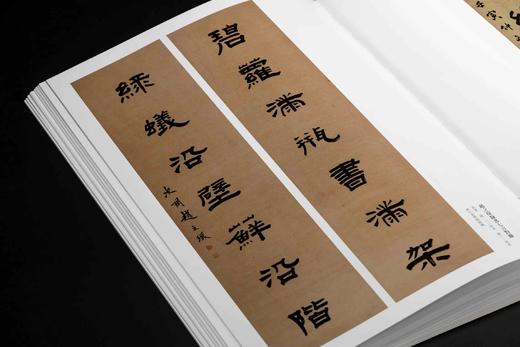 碧蘿滿瓶書滿架
綠蟻沿壁蘚沿階
次閑趙之琛